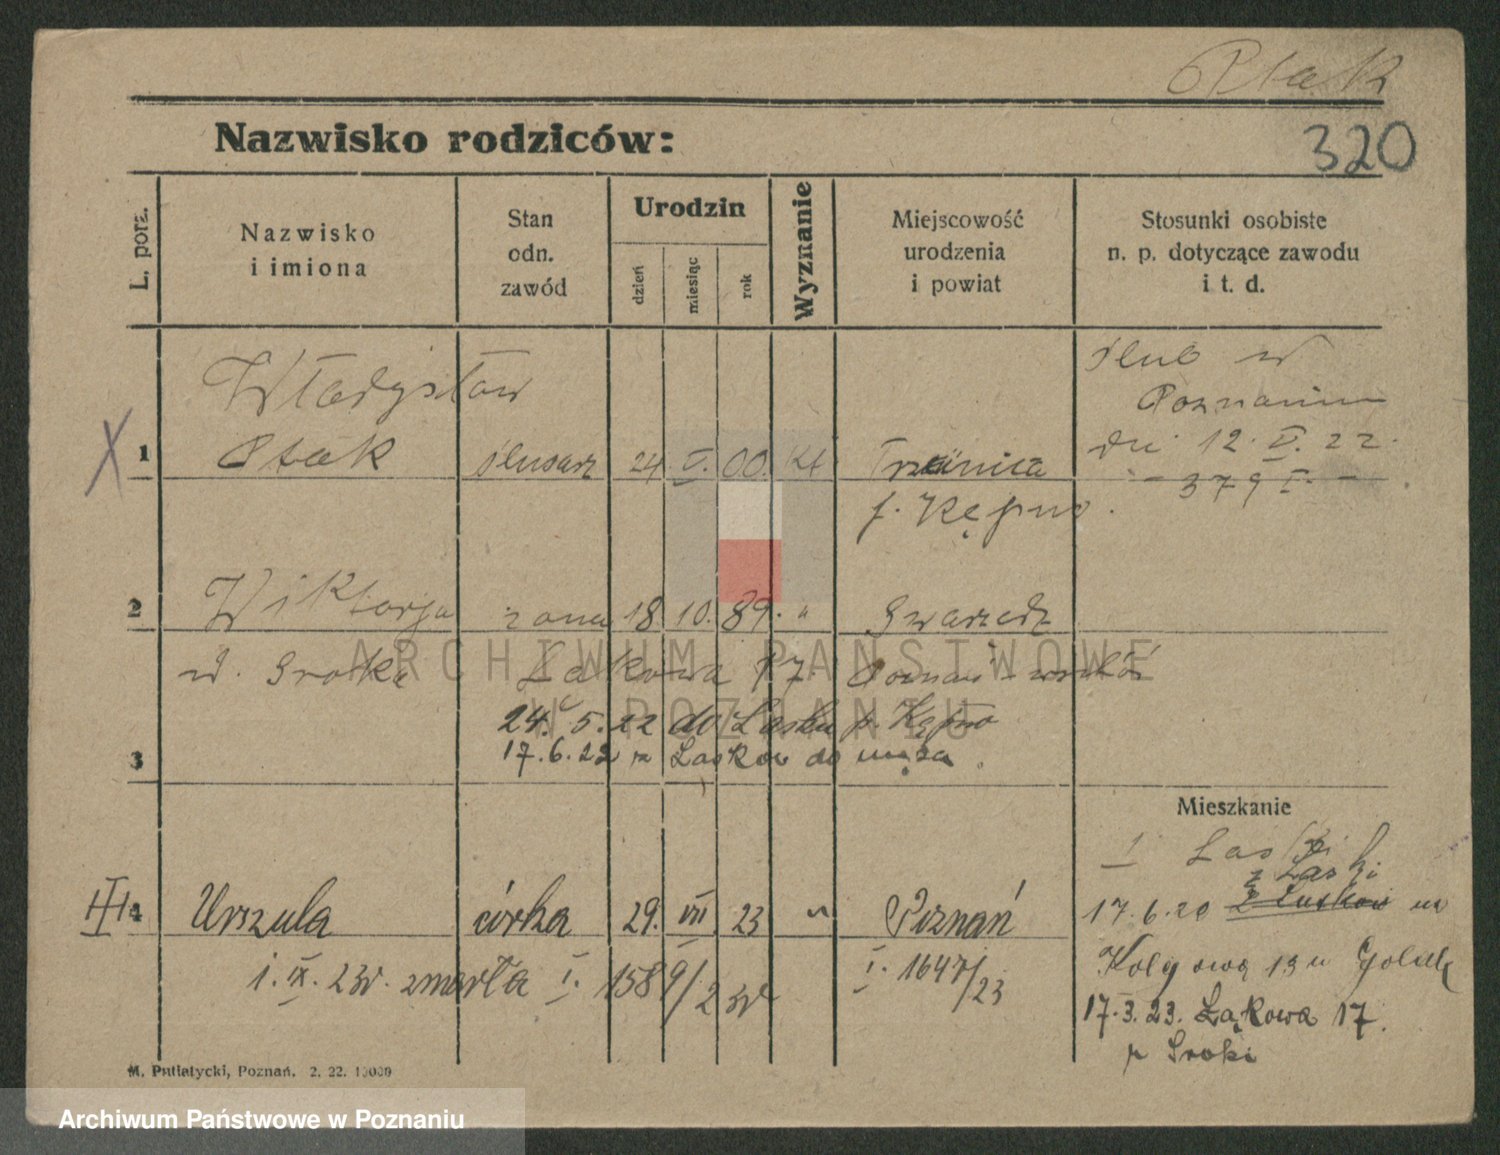 Ptak
320
Nazwisko rodziców:
L. porz.
Nazwisko
i imiona
Stan
odn.
zawód
Urodzin
dzień
miesiąc
rok
Wyznanie
Miejscowość
urodzenia
i powiat
Stosunki osobiste
n. p. dotyczące zawodu
i t. d.
X 1 Władysław
Ptak ślusarz 24. V. 00. Kt
p. Kępno.
ślub w
Poznaniu
dn. 12. V. 22.
- 379 I. -
2 Wiktorja żona 18. 10. 89. "
w. Sroka Łąkowa 17. Poznań
24. 5. 22 do Laski p. Kępno
17. 6. 22 z Lasków do męża.
3
Mieszkanie
I Laski
z Laski
17. 6. 20
13 u
17. 3. 23. Łąkowa 17.
p Sroki
III 4 Urszula córka 29. VII 23 " Poznań
1. IX. 23r. zmarła I. 1589/23r
I. 1647/23
M. Putiatycki, Poznań. 2. 22. 10000
ARCHIWUM PAŃSTWOWE
W POZNANIU
Archiwum Państwowe w Poznaniu